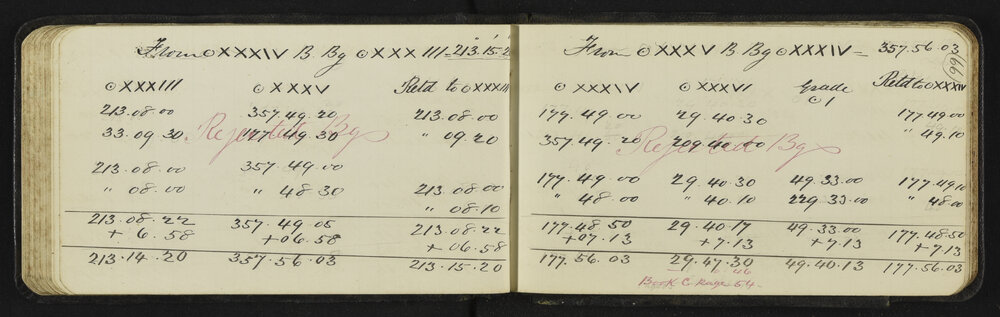 From ⊙XXXIV B. Bg ⊙XXXIII = 213.15.2
⊙XXXIII ⊙XXXV Retd to ⊙XXXIII
213.08.00 357.49.20 213.08.00
33.09.30 177.49.30 " 09.20
Rejected Bgs
213.08.00 357.49.00
" 08.00 " 48.30 213.08.00
" 08.10
213.08.22 357.49.05 213.08.22
+ 6.58 +06.58 +06.58
213.14.20 357.56.03 213.15.20
From ⊙XXXV B. Bg ⊙XXXIV = 357.56.03
99
⊙XXXIV ⊙XXXVI Grade ⊙1 Retd to ⊙XXXIV
177.49.00 29.40.30 177.49.00
357.49.20 209.40.10 " 49.10
Rejected Bgs
177.49.00 29.40.30 49.33.00 177.49.10
" 48.00 " 40.10 229.33.00 " 48.00
177.48.50 29.40.17 49.33.00 177.48.50
+07.13 +7.13 +7.13 +7.13
177.56.03 29.47.30 49.40.13 177.56.03
46
Book C. Page 54.